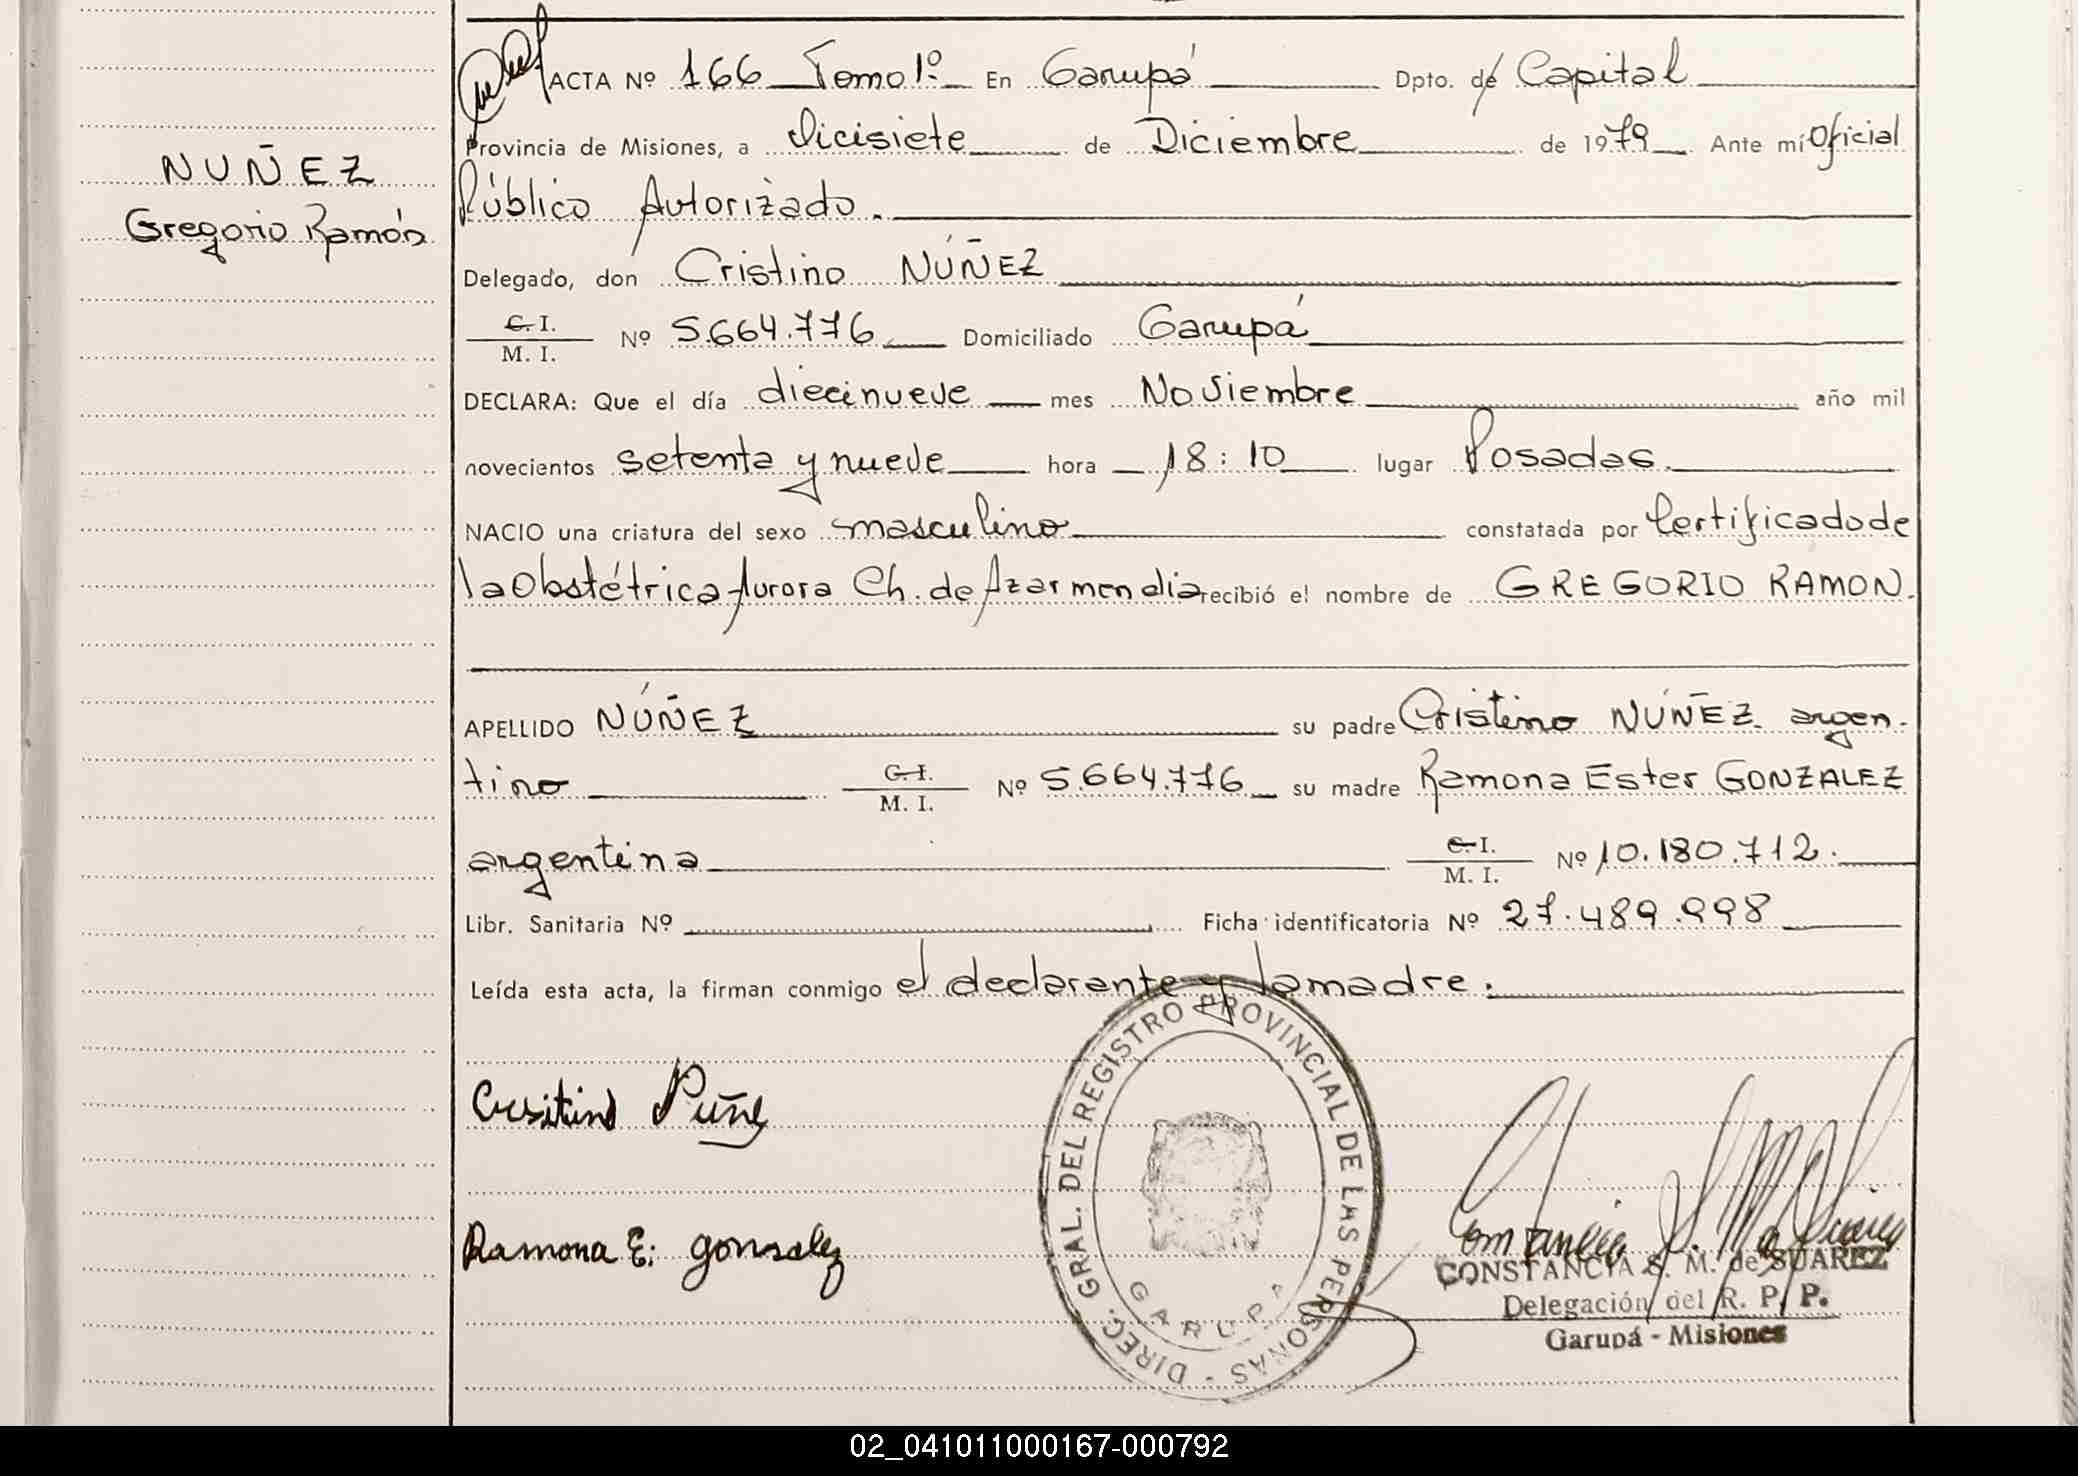 ACTA Nº 166 Tomo 1º En Garupá Dpto. de Capital
Provincia de Misiones, a dicisiete de Diciembre de 1979 Ante mí Oficial
NUÑEZ
Público Autorizado.
Gregorio Ramón
Delegado, don Cristino NÚÑEZ
C. I.
M. I. Nº 5.664.776 Domiciliado Garupá
DECLARA: Que el día diecinueve mes Noviembre año mil
novecientos setenta y nueve hora 18:10 lugar Posadas.
NACIO una criatura del sexo masculino constatada por Certificado de
la Obstétrica Aurora Ch. de Azarmendia recibió el nombre de GREGORIO RAMON.
APELLIDO NÚÑEZ su padre Cristino NÚÑEZ. argen-
tino C. I. M. I. Nº 5.664.776 su madre Ramona Ester GONZALEZ
argentina C. I. M. I. Nº 10.180.712.
Libr. Sanitaria Nº Ficha identificatoria Nº 27.489.998
Leída esta acta, la firman conmigo el declarante y la madre.
DIREC. GRAL. DEL REGISTRO PROVINCIAL DE LAS PERSONAS -
GARUPA
Ramona E. gonsalez
CONSTANCIA S. M. de SUAREZ
Delegación del R. P. P.
Garupá - Misiones
02_041011000167-000792